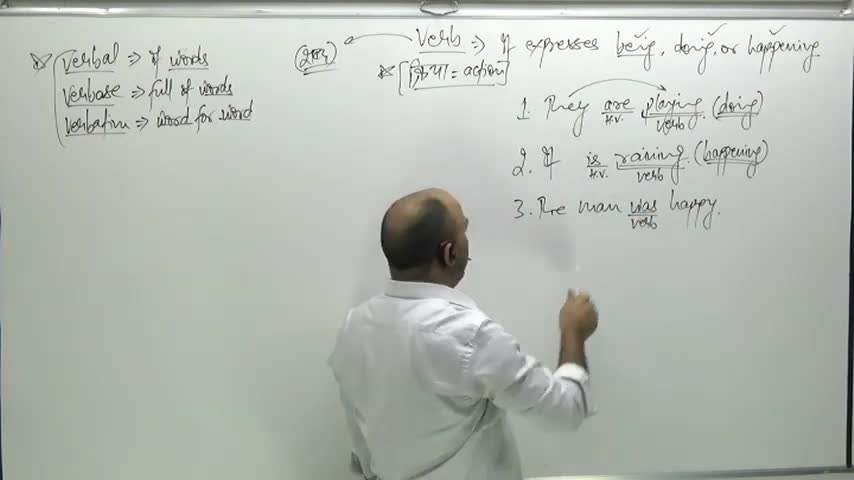 verbal ⇒ of words
verbose ⇒ full of words
verbatim ⇒ word for word
(शब्द) ← Verb ⇒ It expresses being, doing, or happening
[क्रिया = action]
1. They are playing. (doing)
H.V. verb
2. It is raining. (happening)
H.V. verb
3. The man was happy.
verb